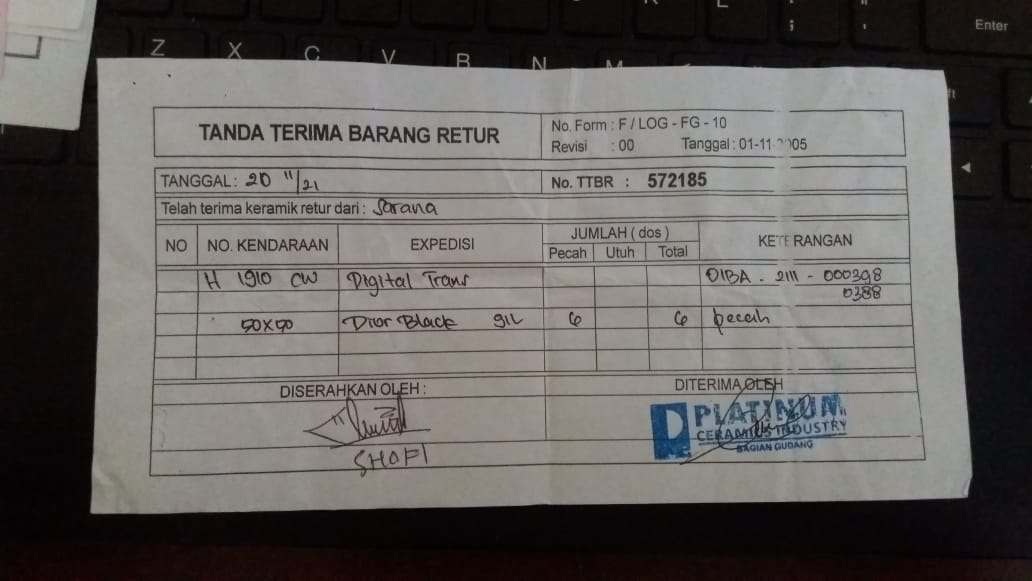 Z X C V B N M
Enter
TANDA TERIMA BARANG RETUR
No. Form : F / LOG - FG - 10
Revisi : 00 Tanggal : 01-11-2005
TANGGAL : 20 11/21 No. TTBR : 572185
Telah terima keramik retur dari : Sarana
NO NO. KENDARAAN EXPEDISI JUMLAH ( dos ) KETERANGAN
Pecah Utuh Total
H 1910 CW Digital Trans DIBA - 2111 - 000398
0388
50x50 Dior Black GIL 6 6 pecah
DISERAHKAN OLEH : DITERIMA OLEH
PLATINUM
CERAMICS INDUSTRY
BAGIAN GUDANG
SHOFI